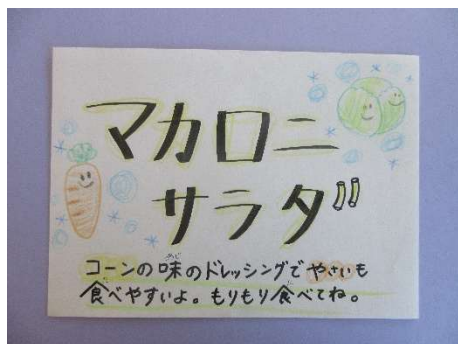 マカロニ
サラダ
コーンの味のドレッシングでやさいも
食べやすいよ。もりもり食べてね。